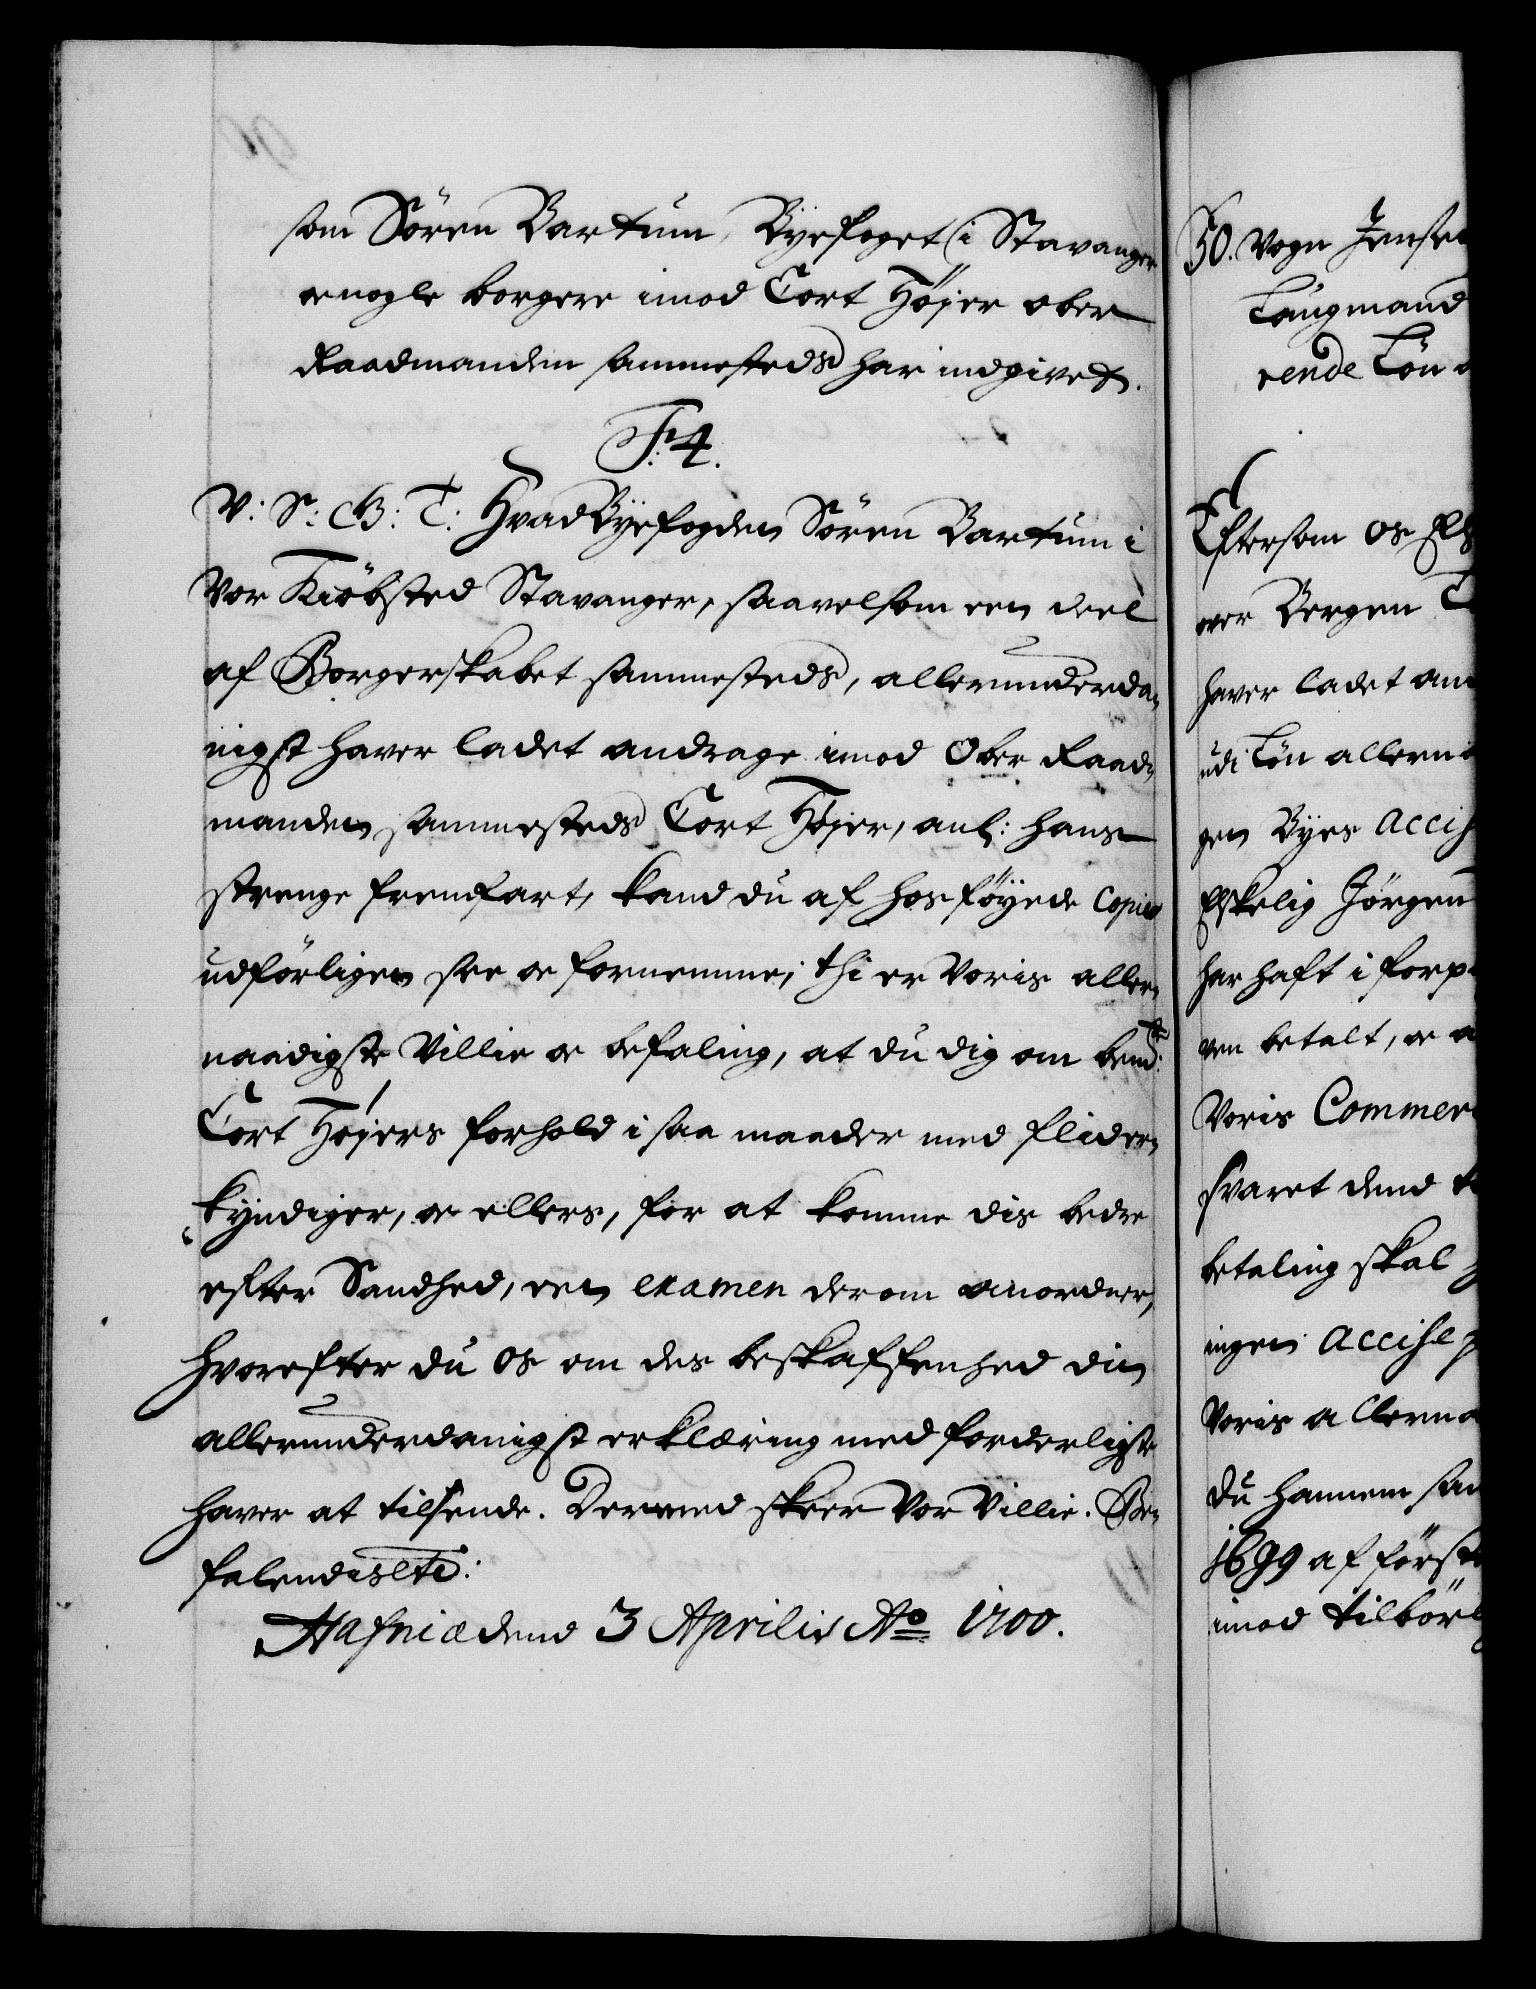 som Sören Bartum, Byefoget i Stavanger
oc nogle borgere imod Cort Höÿer ober
Raadmanden sammesteds har indgivet.
F: 4.
V: S: G: T: Hvad Byefogden Sören Bartum i
Vor Kiöbsted Stavanger, saavelsom een deel
af Borgerskabet sammesteds, allerunderda-
nigst haver ladet andrage imod Ober Raad-
manden sammesteds Cort Höyer, anl: hans
strenge fremfart, kand du af hosföyede Copier
udförligen see oc fornemme; thi er Voris aller-
naadigste Villie oc befaling, at du dig om bemte:
Cort Höyers forhold i saa maader med flid er-
kyndiger, oc ellers, for at komme dis bedre
efter Sandhed, een examen derom anordner,
hvorefter du os om des beskaffenhed din
allerunderdanigst erklæring med forderligste
haver at tilsende. Dermed skeer Vor Villie. Be-
falendis etc:
Hafniæ dend 3 Aprilis Ao 1700.
50. Vogn Jensen
Laugmand
rende Løn
Eftersom os Els
over Bergen
haver ladet an
udi Løn allern
gen Byes Accis
Elskelig Jörgen
har haft i forp
ven betalt, oc
Voris Commer
svaret dend
betaling skal
ingen Accise
Voris allerna
du hannem saa
1699 af först
imod tilbörl